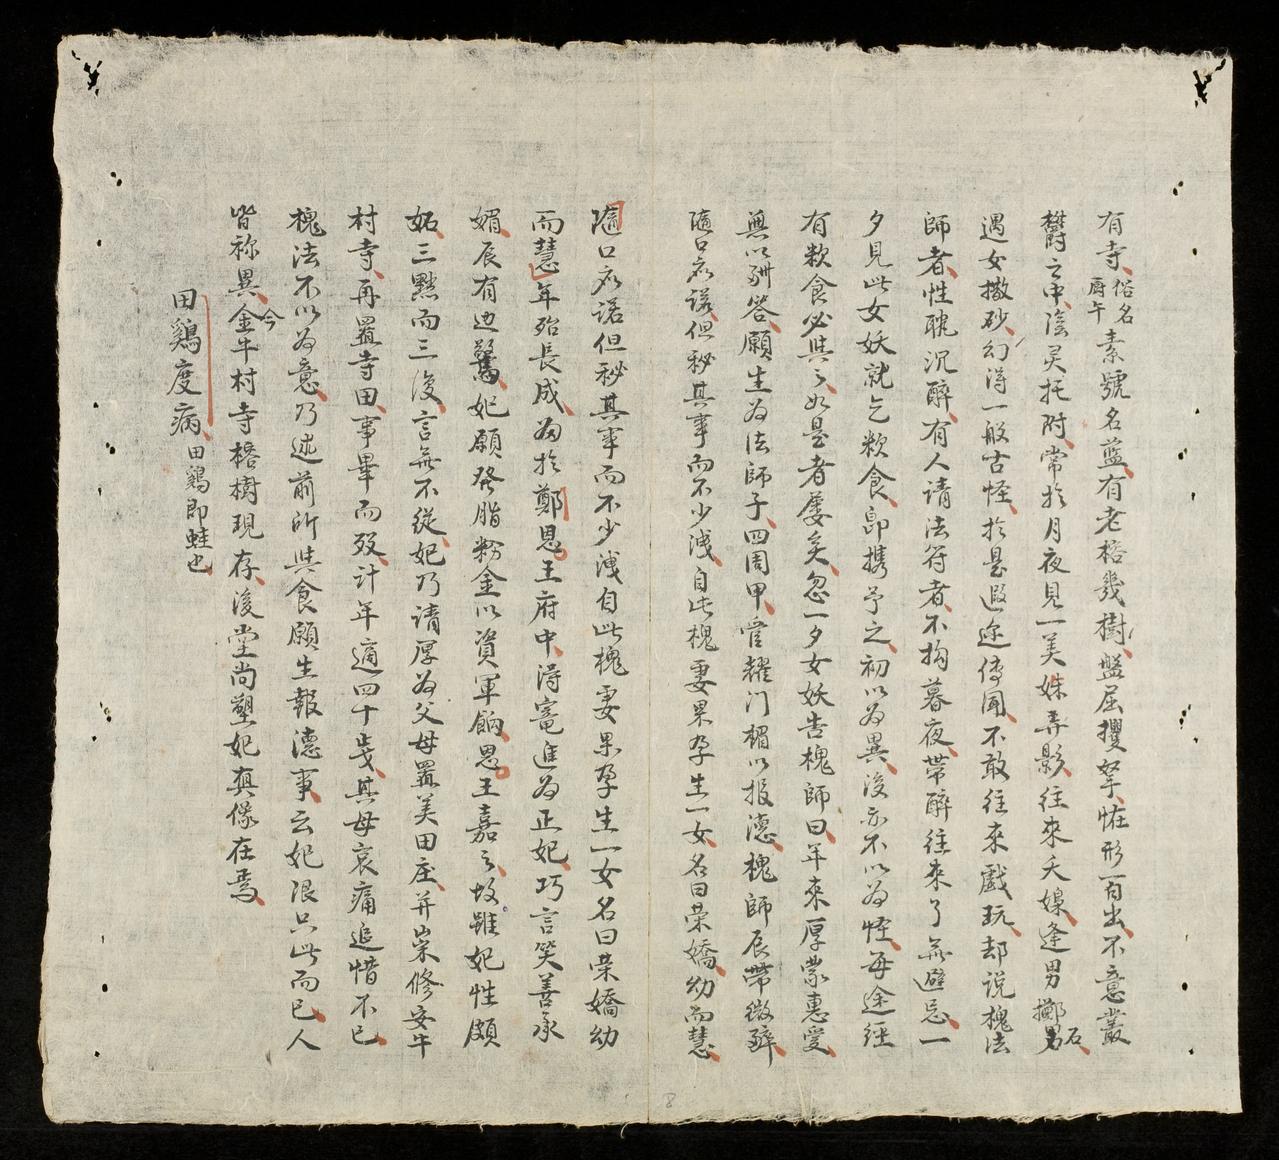 有寺俗名厨午素號名藍有老榕幾樹盤屈攫拏恠形百出不意叢
欝之中陰灵托附常於月夜見一美姝弄影往來夭嬝逢男擲石
遇女撒砂幻得一般古怪於是遐迩傳聞不敢往來戲玩却说槐法
師者性耽沉醉有人请法符者不拘暮夜带醉往來了無避忌一
夕見此女妖就乞歉食即携予之初以為異後亦不以為怪每途经
有歉食必與之如是者屡矣忽一夕女妖告槐師曰年來厚蒙惠愛
無以酬答願生为法師子四周甲官耀门楣以报德槐師辰带微醉
隨口应諾但秘其事而不少洩自此槐妻果孕生一女名曰荣嬌幼而慧
隨口应諾但秘其事而不少洩自此槐妻果孕生一女名曰荣嬌幼
而慧年殆長成为於鄭恩王府中得寵進为正妃巧言笑善承
媚辰有边釁妃願発脂粉金以資軍餉恩王嘉之故雖妃性頗
妬三黙而三復言無不從妃乃请厚为父母置美田庄并崇修安牛
村寺再置寺田事畢而殁计年適四十歲其母哀痛追惜不已
槐法不以为意乃述前所與食願生報德事云妃限只此而已人
皆称異今金牛村寺榕樹現存後堂尚塑妃真像在焉
田鷄度病田鷄即蛙也